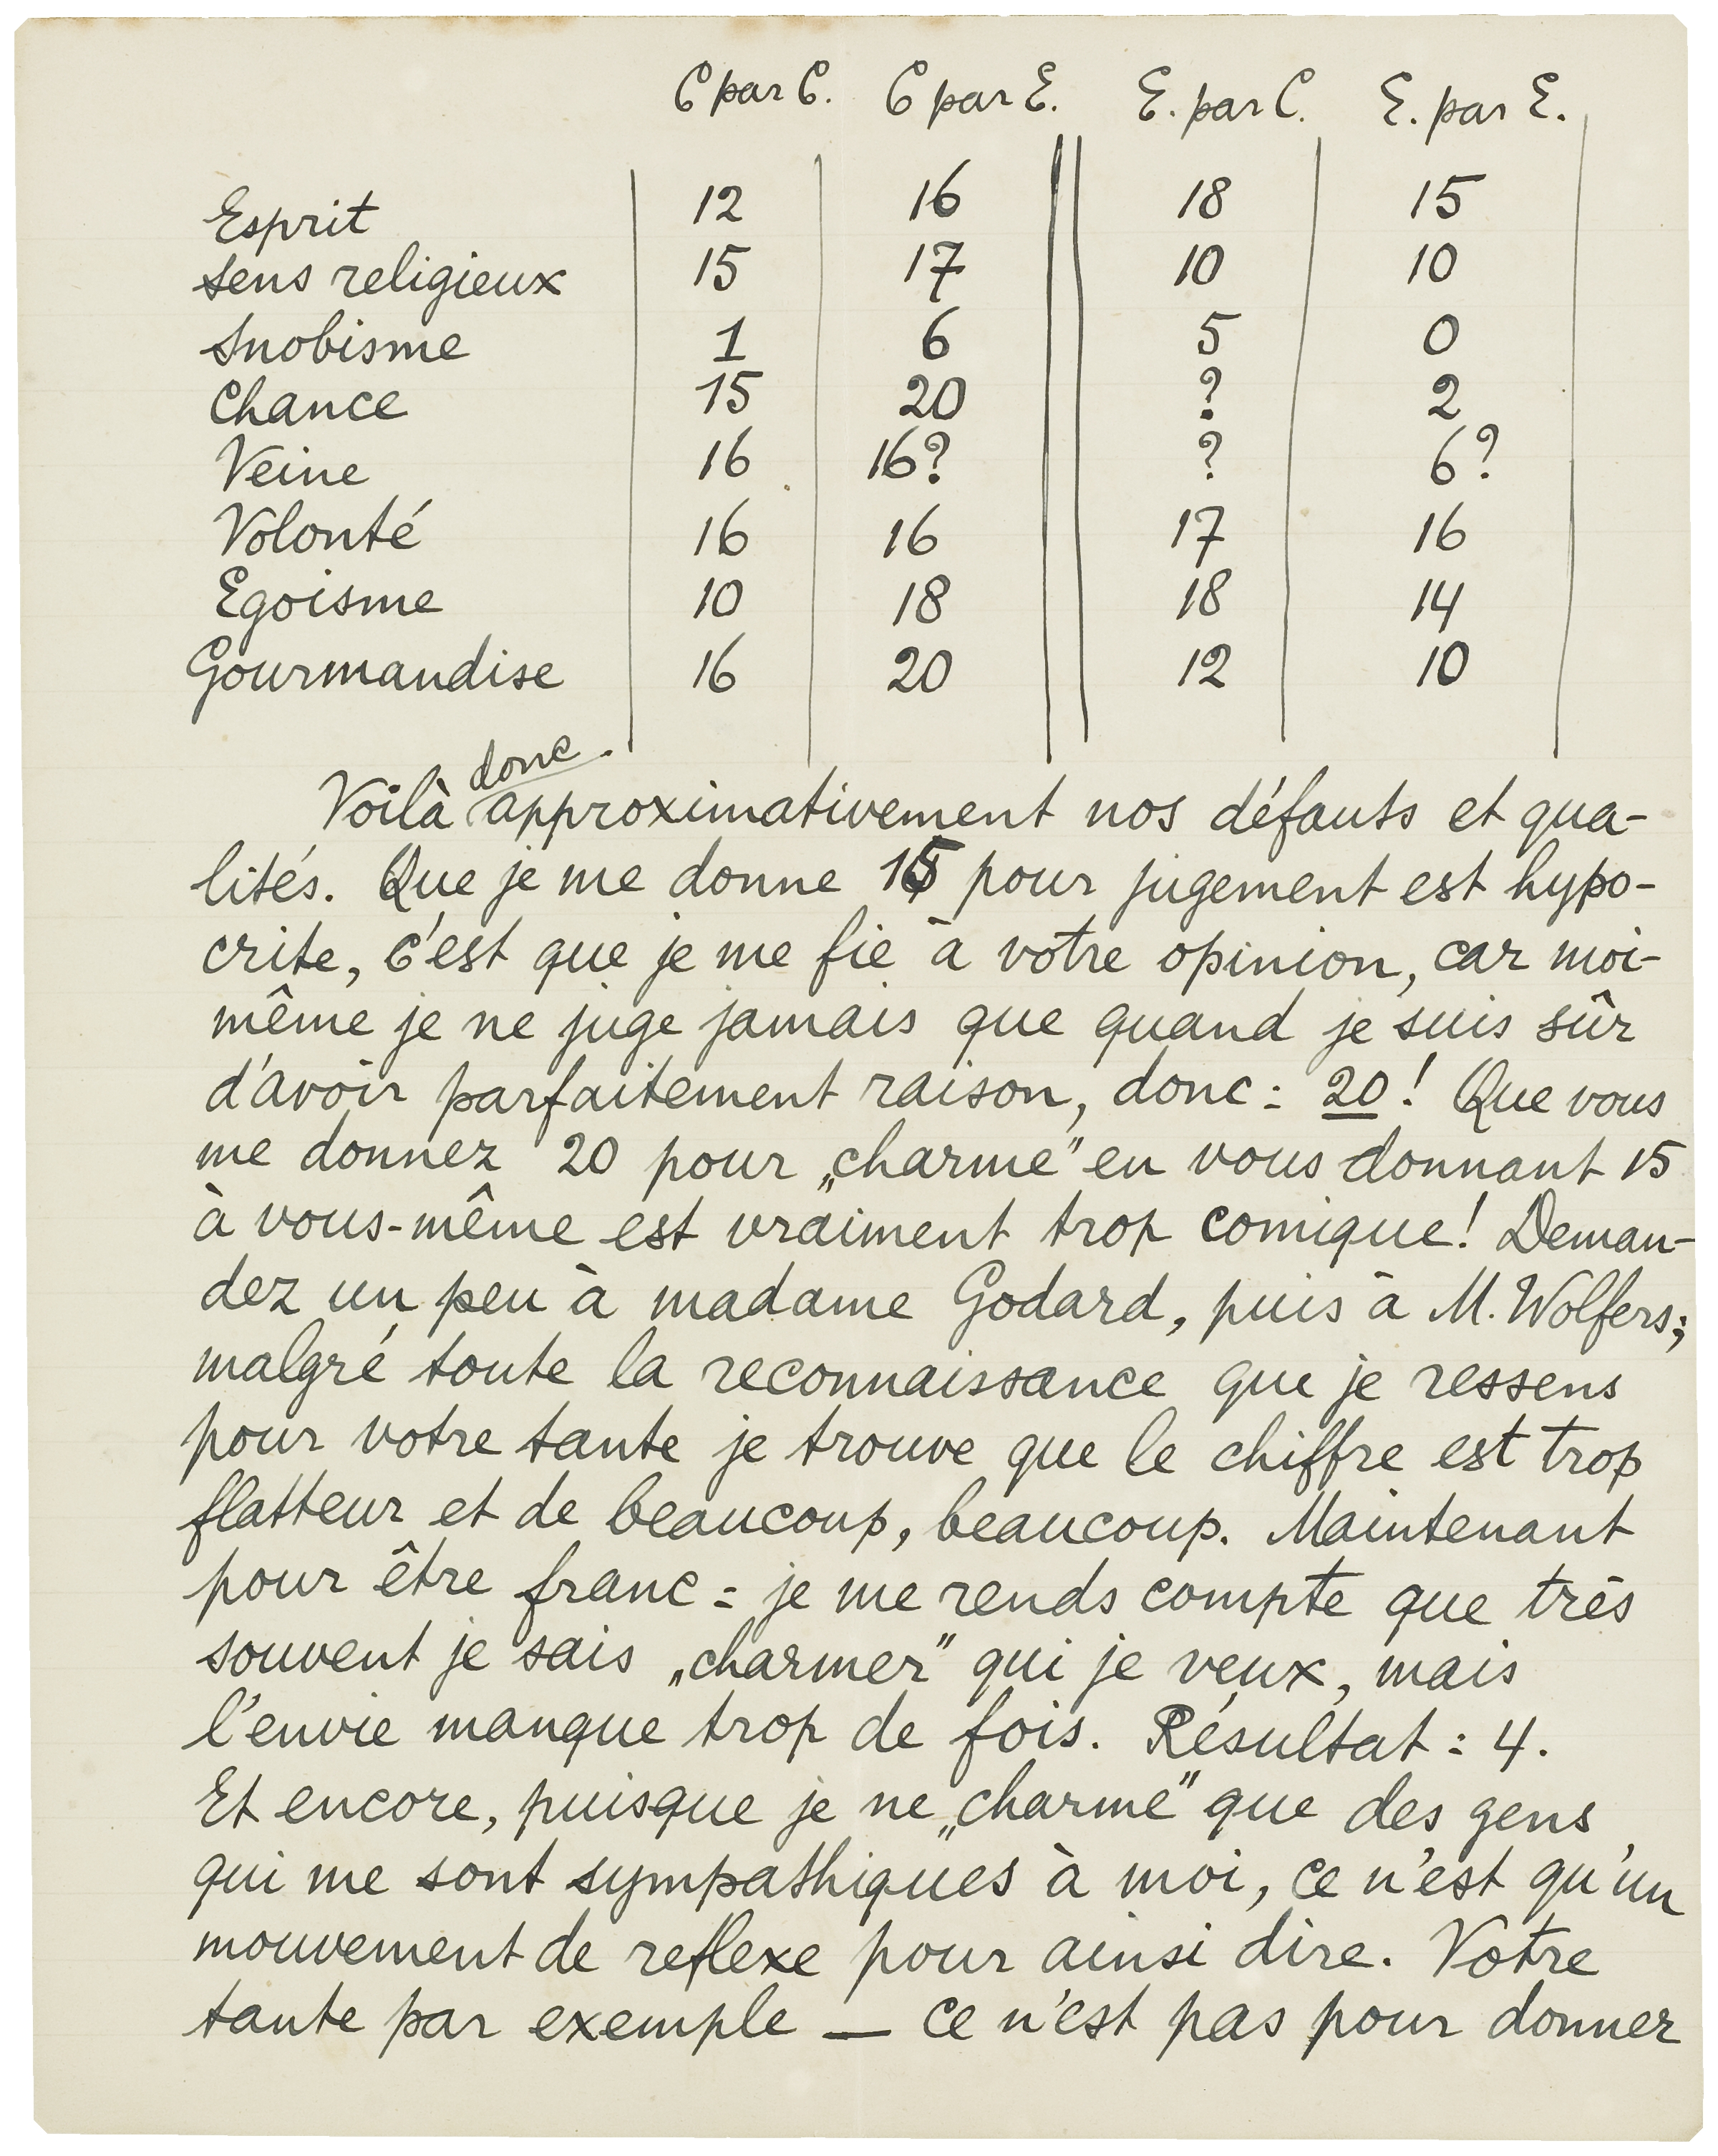 C par C. C par E. E. par C. E. par E.
Esprit 12 16 18 15
sens religieux 15 17 10 10
Snobisme 1 6 5 0
Chance 15 20 ? 2
Veine 16 16? ? 6?
Volonté 16 16 17 16
Egoisme 10 18 18 14
Gourmandise 16 20 12 10
donc
Voilà approximativement nos défauts et qua-
lités. Que je me donne 15 pour jugement est hypo-
crite, c'est que je me fie à votre opinion, car moi-
même je ne juge jamais que quand je suis sûr
d'avoir parfaitement raison, donc : 20! Que vous
me donnez 20 pour „charme" en vous donnant 15
à vous-même est vraiment trop comique! Deman-
dez un peu à madame Godard, puis à M. Wolfers;
malgré toute la reconnaissance que je ressens
pour votre tante je trouve que le chiffre est trop
flatteur et de beaucoup, beaucoup. Maintenant
pour être franc : je me rends compte que très
souvent je sais „charmer" qui je veux, mais
l'envie manque trop de fois. Résultat : 4.
Et encore, puisque je ne „charme" que des gens
qui me sont sympathiques à moi, ce n'est qu'un
mouvement de reflexe pour ainsi dire. Votre
tante par exemple — ce n'est pas pour donner